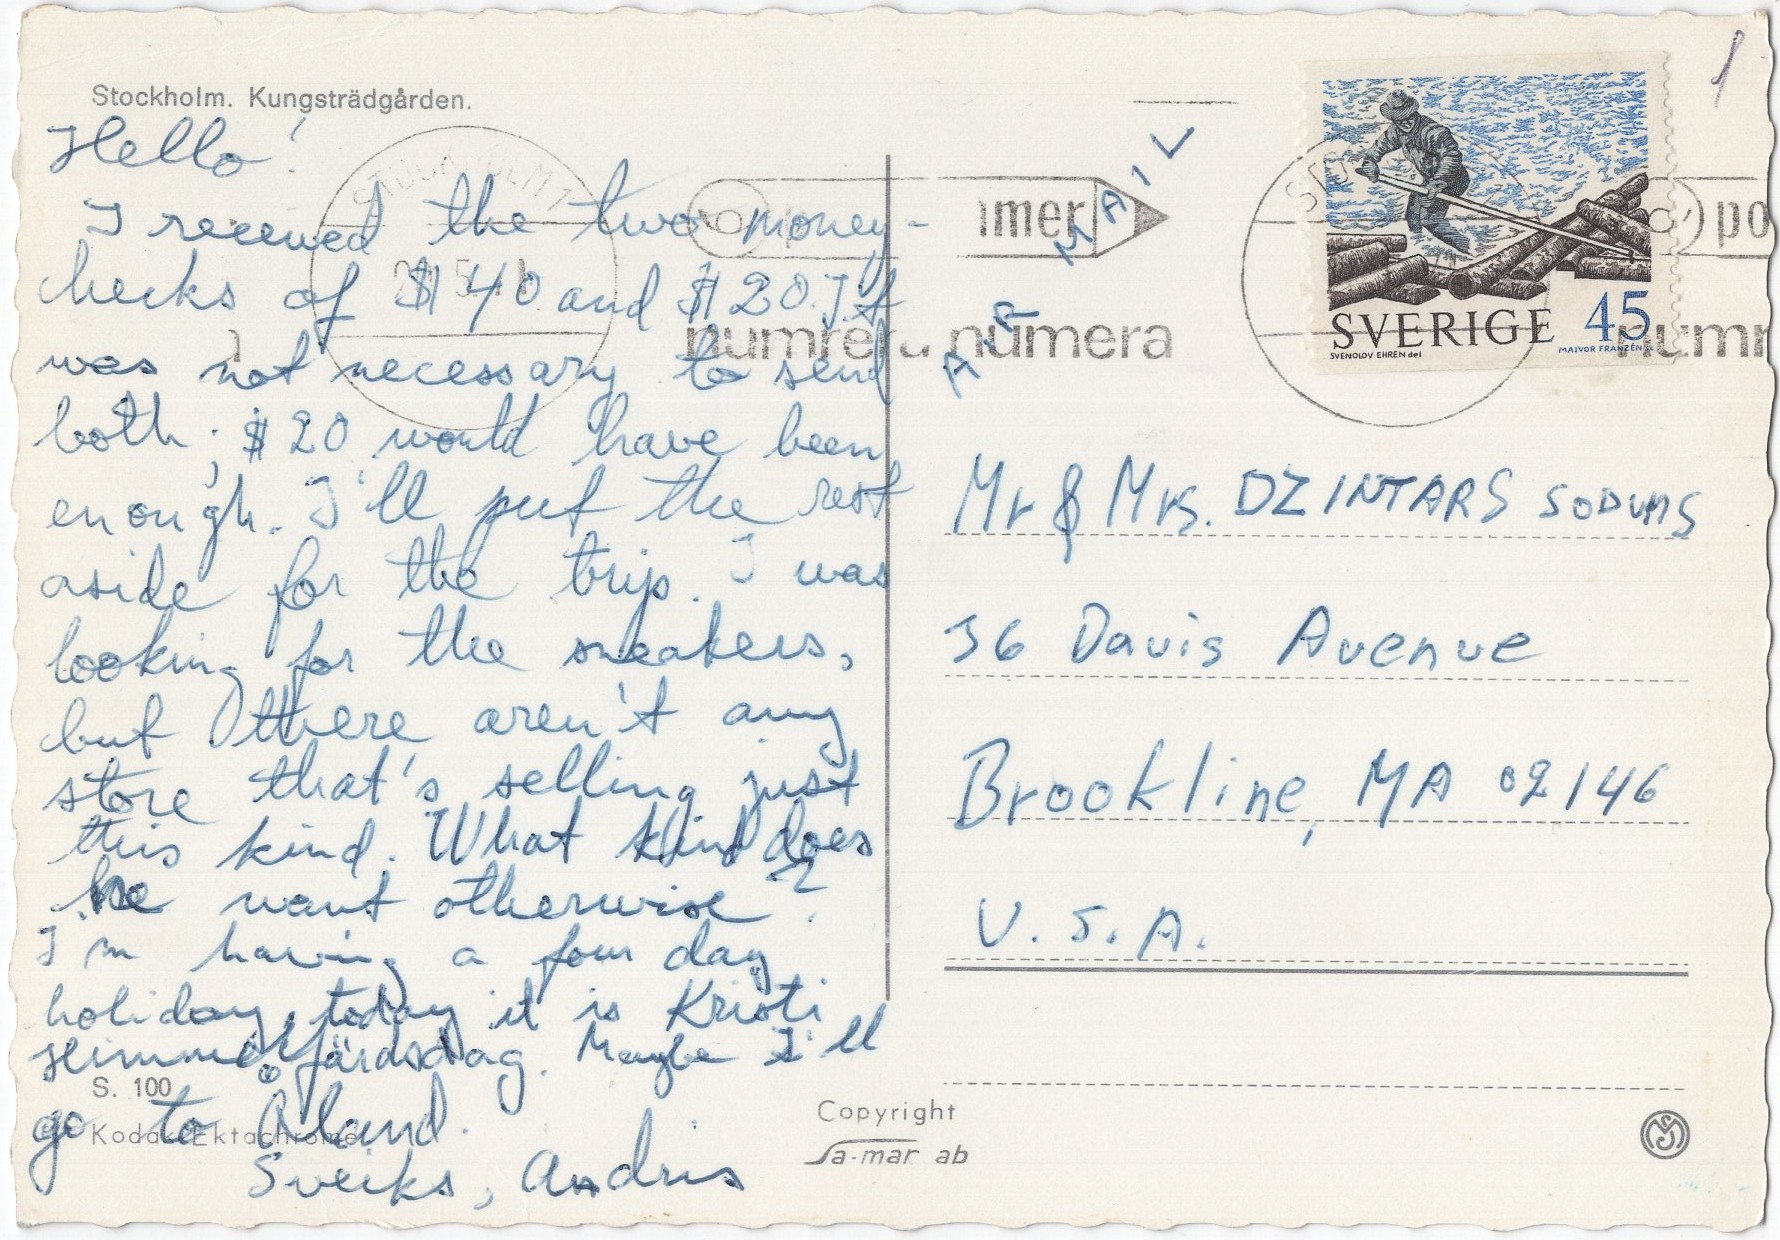 Stockholm. Kungsträdgården.
Hello!
I received the two money-
checks of $40 and $20. It
was not necessary to send
both; $20 would have been
enough. I'll put the rest
aside for the trip. I was
looking for the sneakers,
but there aren't any
store that's selling just
this kind. What kind does
he want otherwise?
I'm having a four day
holiday, today it is Kristi
Himmelfärdsdag. Maybe I'll
go to Åland.
Sveiks, Andris
S. 100
Kodak Ektachrome
Copyright
Sa-mar ab
AIR MAIL
SVERIGE 45
SVENOLOV EHRÉN del
MAJVOR FRANZÉN sc
numrera numera
Mr & Mrs. DZINTARS SODUMS
36 Davis Avenue
Brookline, MA 02146
U.S.A.